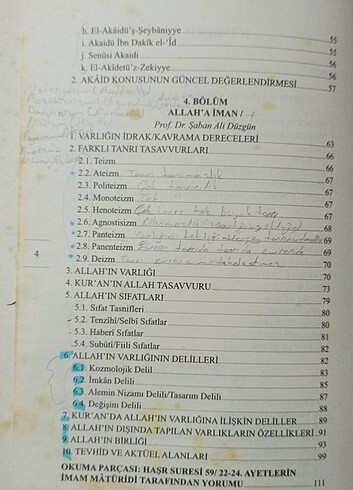 h. El-Akaidü'ş-Şeybâniyye 55
i. Akaidü İbn Dakîk el-'Îd 55
j. Senûsi Akaidi 56
k. El-Akîdetü'z-Zekiyye 56
2. AKÂİD KONUSUNUN GÜNCEL DEĞERLENDİRMESİ 57
4. BÖLÜM
ALLAH'A İMAN /
Prof. Dr. Şaban Ali Düzgün
1. VARLIĞIN İDRAK/KAVRAMA DERECELERİ 63
2. FARKLI TANRI TASAVVURLARI 66
2.1. Teizm 66
2.2. Ateizm Tanrı tanımazlık 66
2.3. Politeizm Çok tanrıcılık 67
2.4. Monoteizm tek 67
2.5. Henoteizm Çok tanrı tek büyük tanrı 67
2.6. Agnostisizm 67
2.7. Panteizm Varlığın birliği 67
2.8. Panenteizm Evren tanrıda tanrı evrende 69
2.9. Deizm Tanrı evrene müdahale etmez 70
4
3. ALLAH'IN VARLIĞI 70
4. KUR'AN'IN ALLAH TASAVVURU 73
5. ALLAH'IN SIFATLARI 79
5.1. Sıfat Tasnifleri 80
5.2. Tenzîhî/Selbî Sıfatlar 80
5.3. Haberî Sıfatlar 81
5.4. Subûtî/Fiili Sıfatlar 82
6. ALLAH'IN VARLIĞININ DELİLLERİ 82
6.1. Kozmolojik Delil 83
6.2. İmkân Delili 85
6.3. Alemin Nizamı Delili/Tasarım Delili 87
6.4. Değişim Delili 88
7. KUR'AN'DA ALLAH'IN VARLIĞINA İLİŞKİN DELİLLER 89
8. ALLAH'IN DIŞINDA TAPILAN VARLIKLARIN ÖZELLİKLERİ 91
9. ALLAH'IN BİRLİĞİ 93
10. TEVHİD VE AKTÜEL ALANLARI 99
OKUMA PARÇASI: HAŞR SURESİ 59/ 22-24. AYETLERİN
İMAM MÂTÜRİDÎ TARAFINDAN YORUMU 111